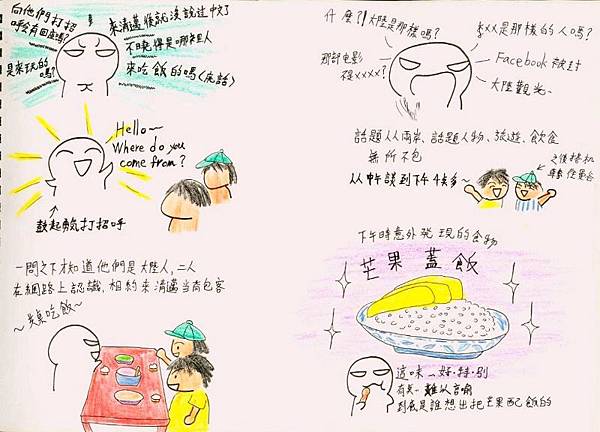 向他們打招
呼會有回應嗎?
是來玩的
嗎?
來清邁後就沒說過中文了
不曉得是哪裡人
來吃飯的嗎(廢話)
Hello~
Where do you
come from?
鼓起勇氣打招呼
一問之下才知道他們是大陸人,二人
在網路上認識,相約來清邁當背包客
~共桌吃飯~
什麼?!大陸是那樣嗎?
XXX是那樣的人嗎?
那部电影
很XXXX?
Facebook被封
大陸觀光、
話題從兩岸、話題人物、旅遊、飲食
無所不包
從中午談到下午4點多~
之後轉机
下午時意外發現的食物
芒果蓋飯
這味~好·特·別
有點難以言喻
到底是誰想出把芒果配飯的